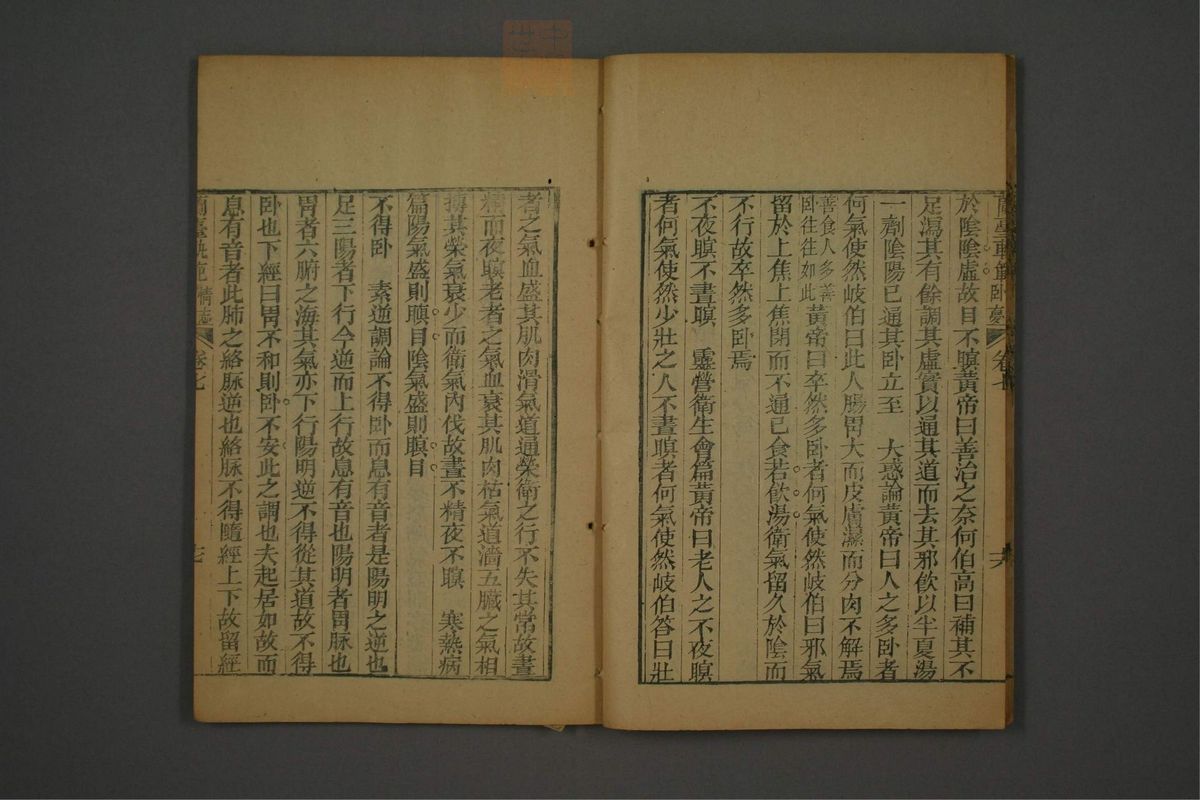 卧夢 卷七
於陰陰虛故目不瞑黃帝曰善治之奈何伯高曰補其不
足瀉其有餘調其虛實以通其道而去其邪飲以半夏湯
一劑陰陽已通其卧立至　大惑論黃帝曰人之多卧者
何氣使然岐伯曰此人腸胃大而皮膚濕而分肉不解焉
善食人多善
卧往往如此
黃帝曰卒然多卧者何氣使然岐伯曰邪氣
留於上焦上焦閉而不通已食若飲湯衛氣留久於陰而
不行故卒然多卧焉
不夜瞑不晝瞑　靈營衛生會篇黃帝曰老人之不夜瞑
者何氣使然少壯之人不晝瞑者何氣使然岐伯答曰壯
者之氣血盛其肌肉滑氣道通榮衛之行不失其常故晝
精而夜瞑老者之氣血衰其肌肉枯氣道濇五臟之氣相
搏其榮氣衰少而衛氣內伐故晝不精夜不瞑　寒熱病
篇陽氣盛則瞋目陰氣盛則瞑目
不得卧　素逆調論不得卧而息有音者是陽明之逆也
足三陽者下行今逆而上行故息有音也陽明者胃脉也
胃者六腑之海其氣亦下行陽明逆不得從其道故不得
卧也下經曰胃不和則卧不安此之謂也夫起居如故而
息有音者此肺之絡脉逆也絡脉不得隨經上下故留經
蘭臺軌範 情志 卷七 七